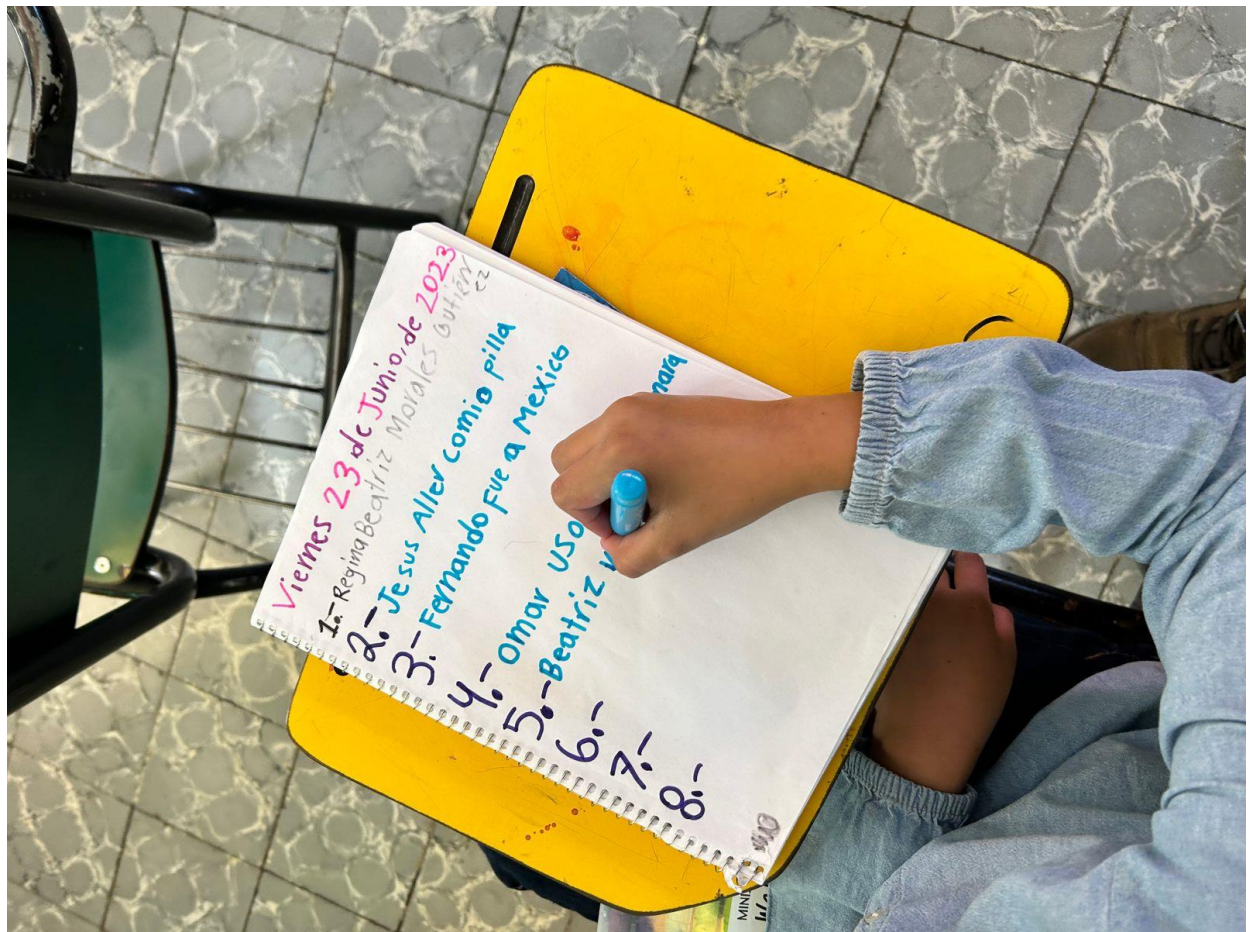 Viernes 23 de Junio, de 2023
1.- Regina Beatriz Morales Gutiérrez
2.- Jesus Aller comio pilla
3.- Fernando fue a Mexico
4.- Omar uso
5.- Beatriz
6.-
7.-
8.-